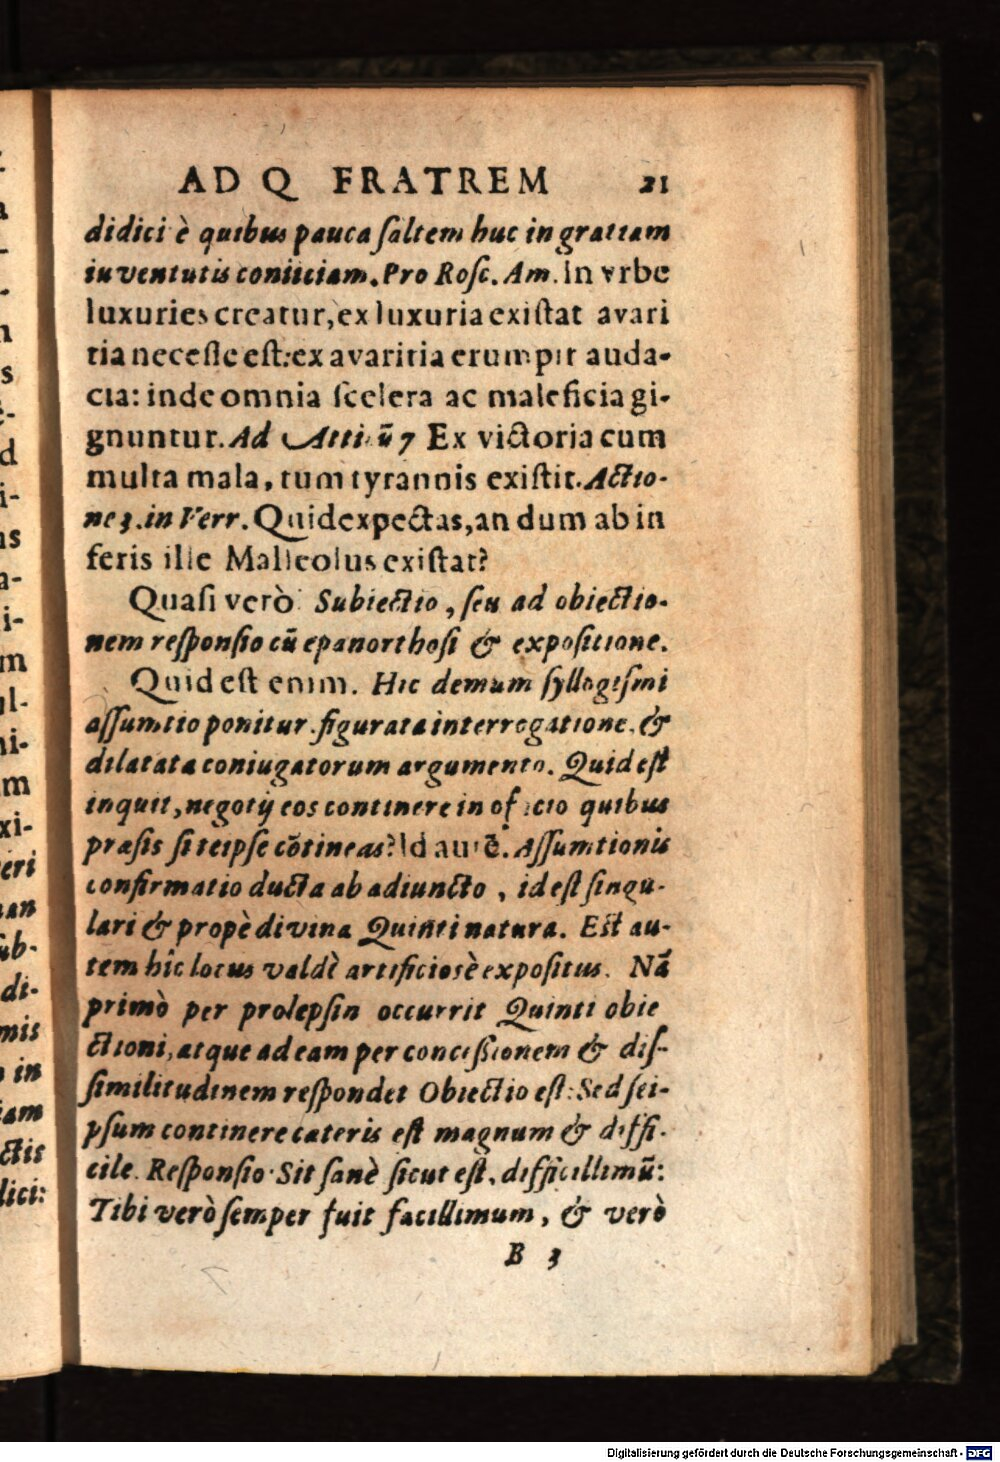 AD Q FRATREM 21
didici è quibus pauca saltem huc in gratiam
iuventutis coniiciam. Pro Rosc. Am. In vrbe
luxuries creatur, ex luxuria existat avari
tia necesse est: ex avaritia erumpit auda-
cia: inde omnia scelera ac maleficia gi-
gnuntur. Ad Atticũ 7 Ex victoria cum
multa mala, tum tyrannis existit. Actio-
ne 3. in Verr. Quid expectas, an dum ab in
feris ille Malleolus existat?
Quasi verò Subiectio, seu ad obiectio-
nem responsio cũ epanorthosi & expositione.
Quid est enim. Hic demum syllogismi
assumtio ponitur. figurata interrogatione. &
dilatata coniugatorum argumento. Quid est
inquit, negotij eos continere in officio quibus
præsis si teipse cõtineas? Id autẽ. Assumtionis
confirmatio ducta ab adiuncto, id est singu-
lari & propè divina Quinti natura. Est au-
tem hic locus valdè artificiosè expositus. Nã
primò per prolepsin occurrit Quinti obie
ctioni, atque ad eam per concessionem & dis-
similitudinem respondet Obiectio est: Sed sei-
psum continere cateris est magnum & diffi-
cile. Responsio. Sit sanè sicut est, difficillimũ:
Tibi verò semper fuit facillimum, & verò
B 3
a
-
-
n
s
d
i-
ns
a-
i-
m
ul-
ni-
m
xi-
eri
an
ub-
di-
mis
in
iam
ctis
dici:
Digitalisierung gefördert durch die Deutsche Forschungsgemeinschaft - DFG